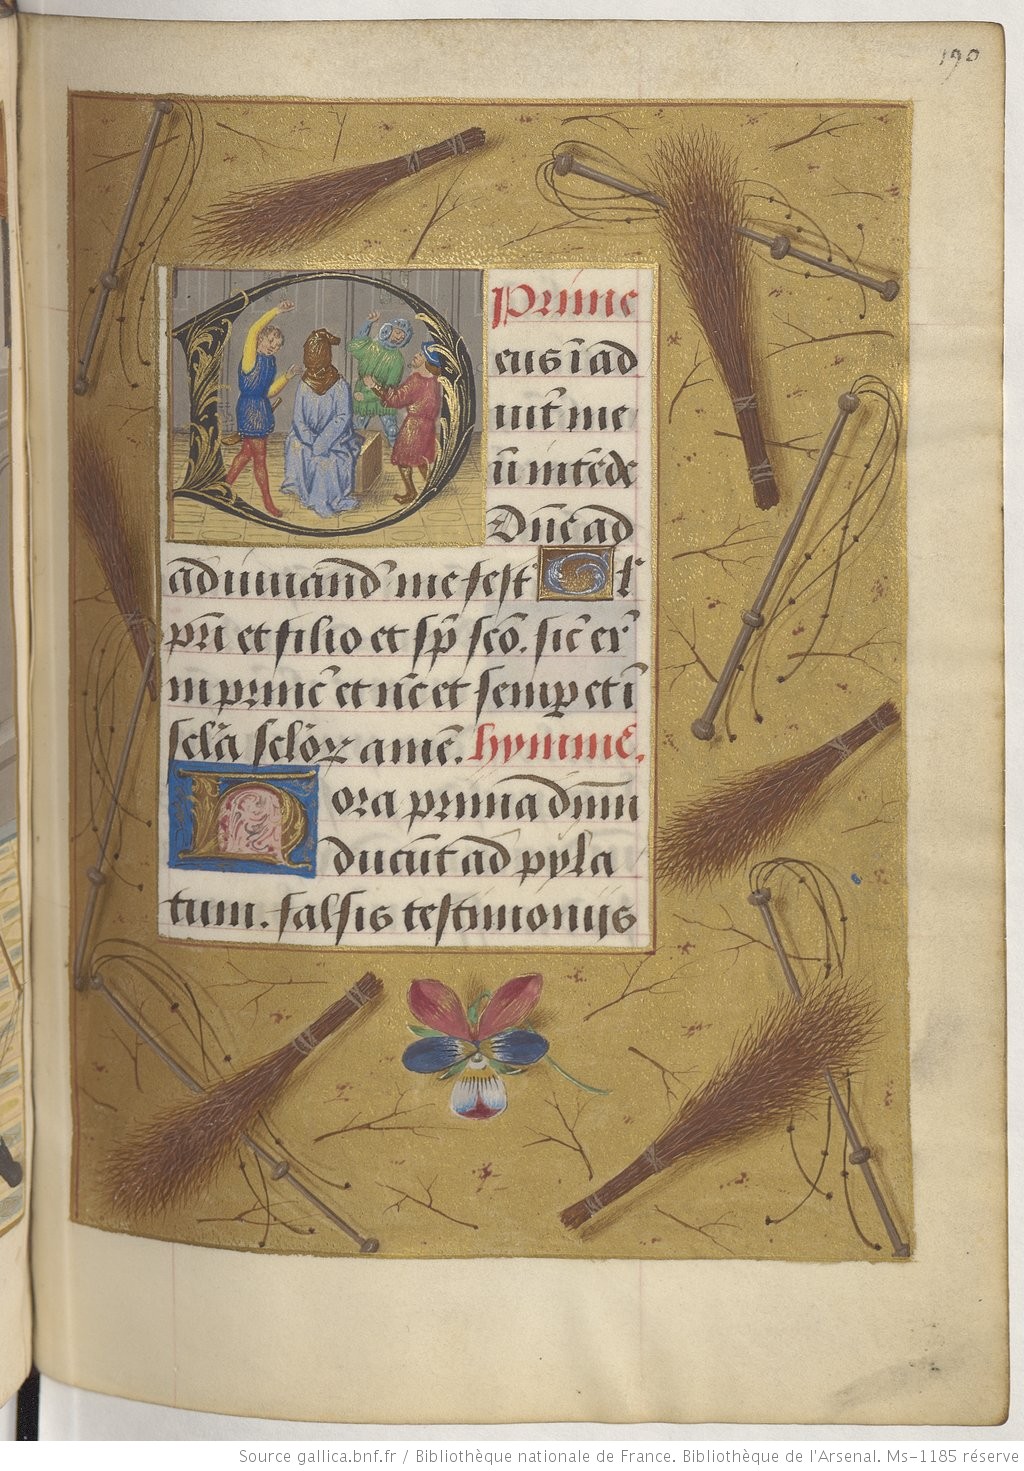 190
Prime
eus ī ad
iut̄ me
ū intēde
Dn̄e ad
ad iuuand̄ me fest̄ Gl'
pr̄i et filio et sp̄ scō. sic̄ er̄
in princ̄ et nc̄ et semꝑ et ī
scl̄a sclōꝝ amē. hymnꝰ.
Hora prima dn̄m
ducūt ad pyla
tum. falsis testimonijs
Source gallica.bnf.fr / Bibliothèque nationale de France. Bibliothèque de l'Arsenal. Ms-1185 réserve